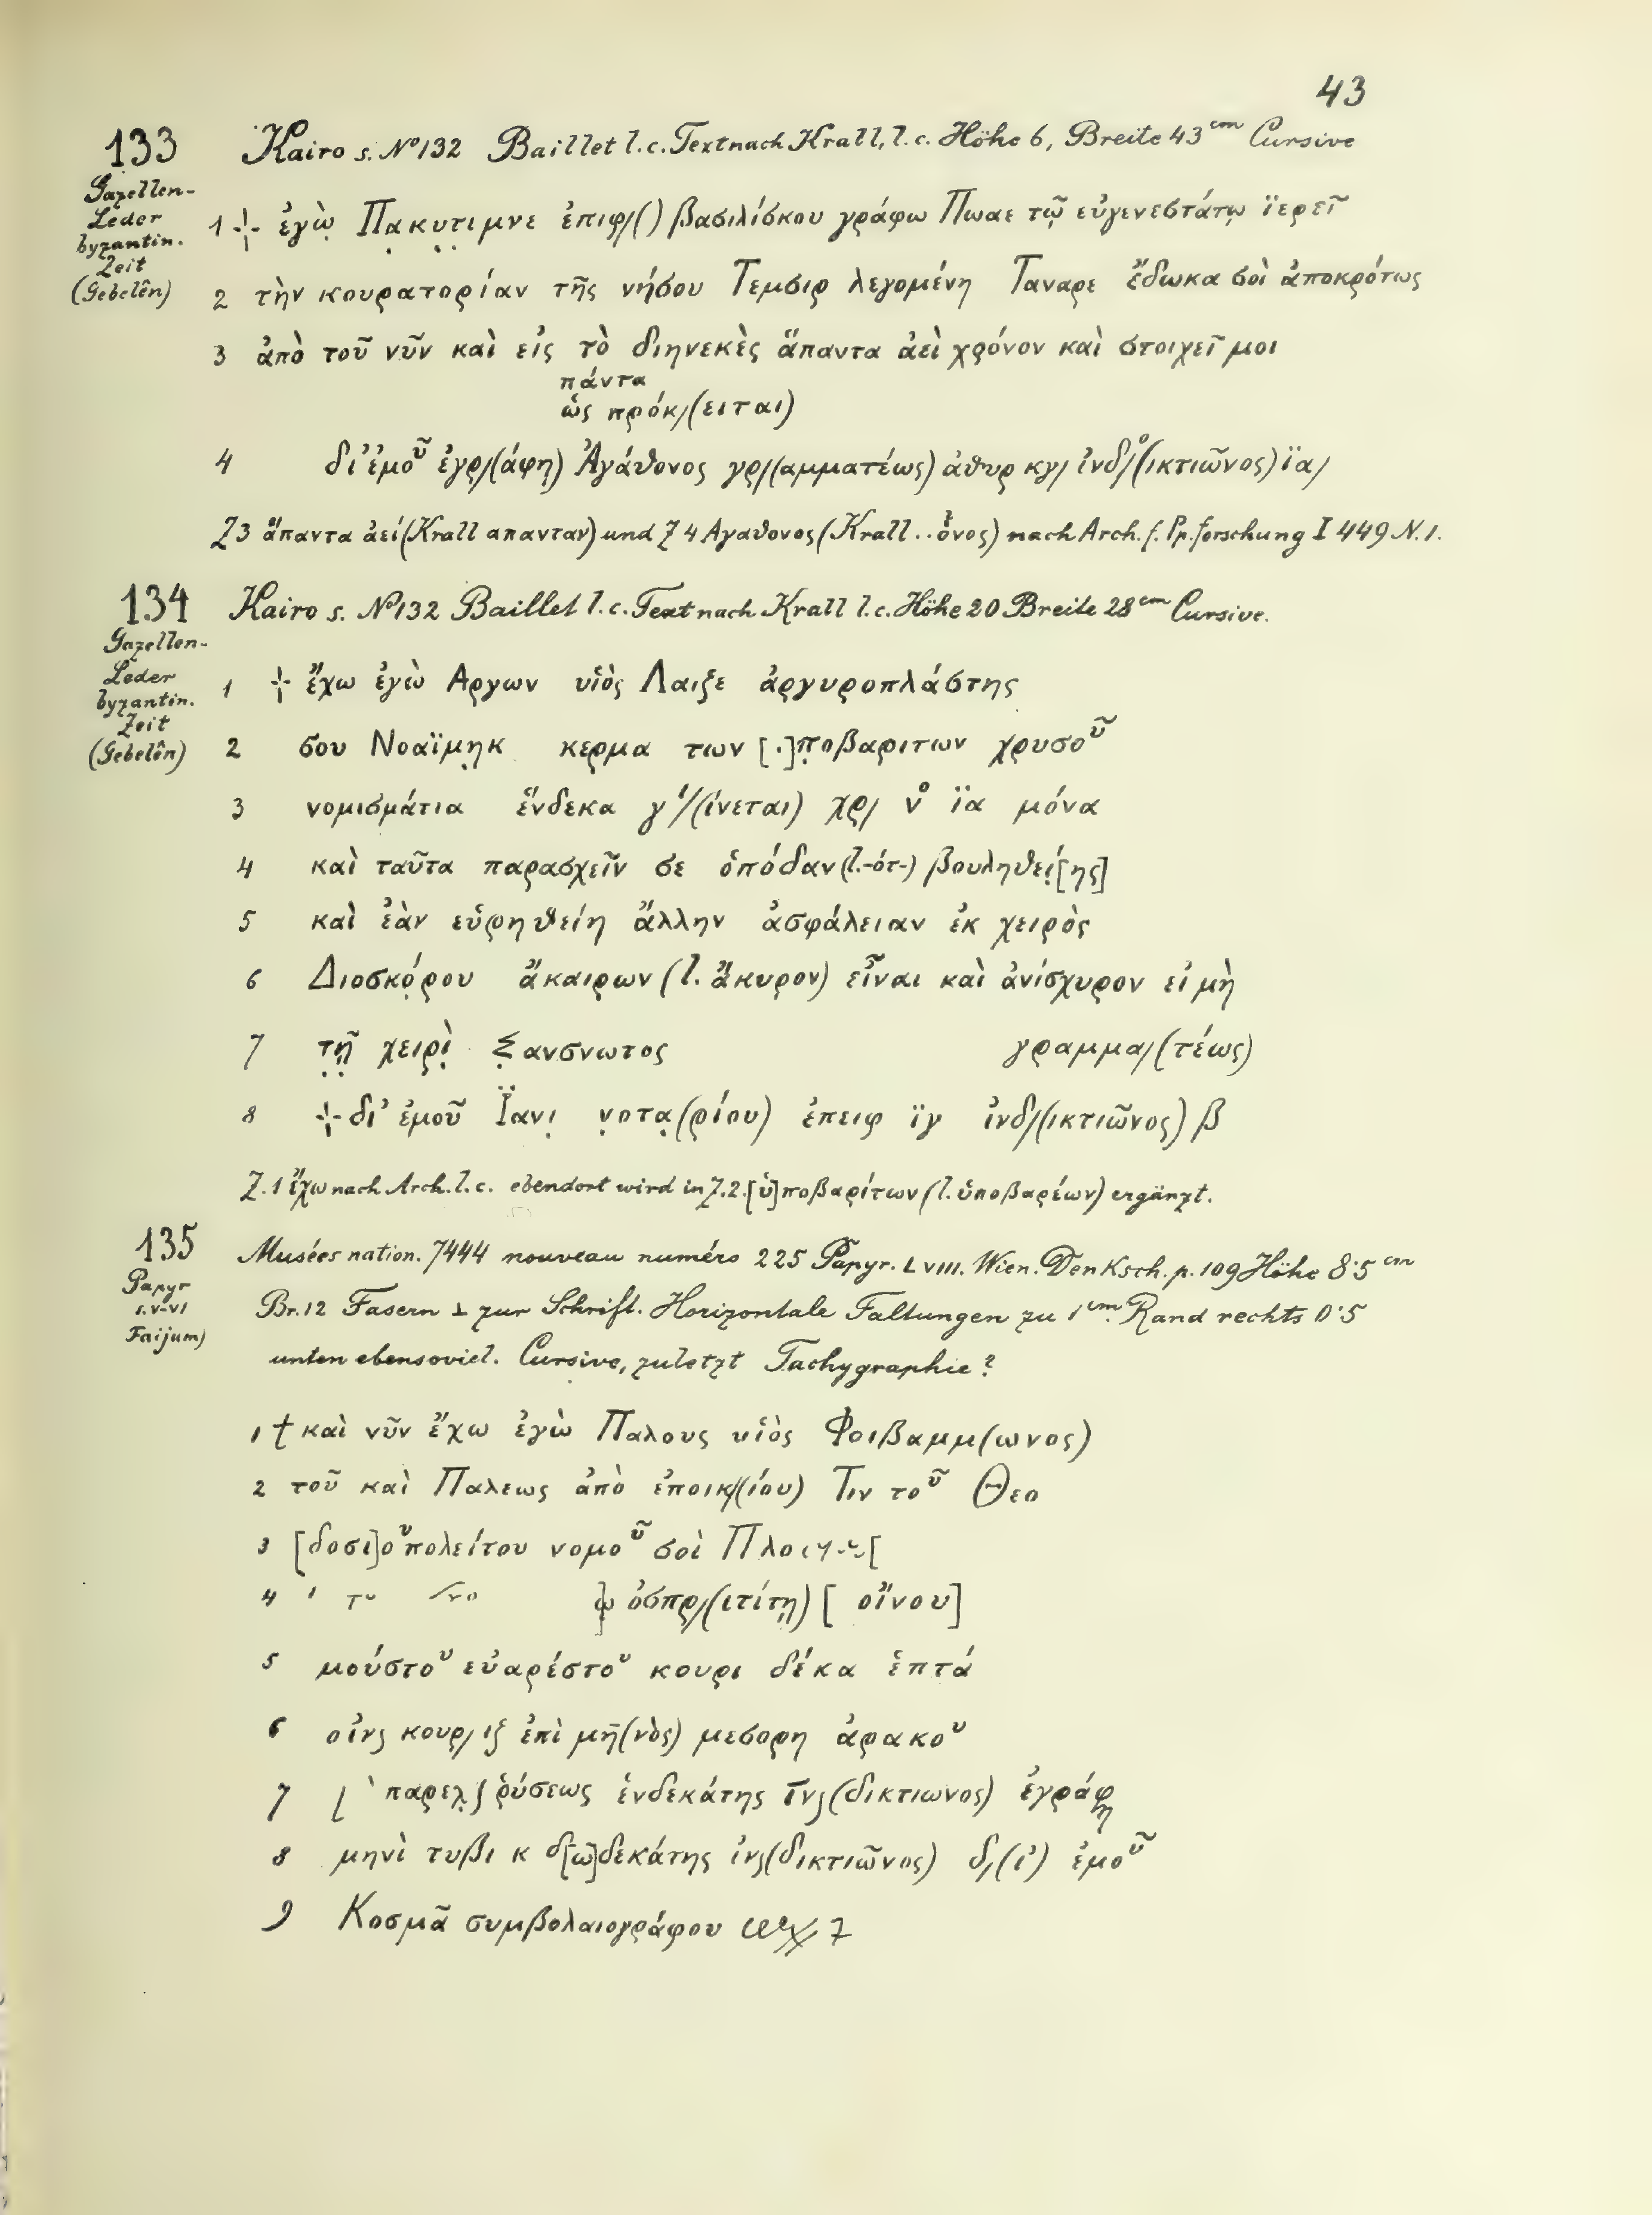 43
133 Kairo s. No 132 Baillet l.c. Text nach Krall, l.c. Höhe 6, Breite 43 cm Cursive
Gazellen-
Leder
byzantin.
Zeit
(Gebelên)
1 ⳨ ἐγὼ Πακυτιμνε ἐπιφ/( ) βασιλίσκου γράφω Πωαε τῷ εὐγενεστάτῳ ϊερεῖ
2 τὴν κουρατορίαν τῆς νήσου Τεμσιρ λεγομένη Ταναρε ἔδωκα σοὶ ἀποκρότως
3 ἀπὸ τοῦ νῦν καὶ εἰς τὸ διηνεκὲς ἅπαντα ἀεὶ χρόνον καὶ στοιχεῖ μοι
πάντα
ὡς πρόκ/(ειται)
4 δι' ἐμοῦ ἐγρ/(άφη) Ἀγάθονος γρ/(αμματέως) ἁθυρ κγ/ ἰνδ/(ικτιῶνος) ϊα/
Z 3 ἅπαντα ἀεί (Krall απανταν) und Z 4 Αγαθονος (Krall ..όνος) nach Arch. f. Pp. forschung I 449 N. 1.
134 Kairo s. No 132 Baillet l.c. Text nach Krall l.c. Höhe 20 Breite 28 cm Cursive.
Gazellen-
Leder
byzantin.
Zeit
(Gebelên)
1 ⳨ ἔχω ἐγὼ Αργων υἱὸς Λαιξε ἀργυροπλάστης
2 σου Νοαϊμηκ κερμα των [.]ποβαριτων χρυσοῦ
3 νομισμάτια ἕνδεκα γί/(ίνεται) χρ/ νο ϊα μόνα
4 καὶ ταῦτα παρασχεῖν σε ὁπόδαν (l. -ότ-) βουληθεί[ης]
5 καὶ ἐὰν εὑρηθείη ἄλλην ἀσφάλειαν ἐκ χειρὸς
6 Διοσκόρου ἄκαιρων (l. ἄκυρον) εἶναι καὶ ἀνίσχυρον εἰ μὴ
7 τῇ χειρὶ Ξανσνωτος γραμμα/(τέως)
8 ⳨ δι' ἐμοῦ Ϊανι νοτα(ρίου) ἐπειφ ϊγ ἰνδ/(ικτιῶνος) β
Z. 1 ἔχω nach Arch. l.c. ebendort wird in Z. 2. [ὑ]ποβαρίτων (l. ὑποβαρέων) ergänzt.
135 Musées nation. 7444 nouveau numéro 225 Papyr. LVIII. Wien. Denksch. p. 109 Höhe 8·5 cm
Papyr
s. V-VI
Faijum)
Br. 12 Fasern ⊥ zur Schrift. Horizontale Faltungen zu 1 cm. Rand rechts 0·5
unten ebensoviel. Cursive, zuletzt Tachygraphie?
1 † καὶ νῦν ἔχω ἐγὼ Παλους υἱὸς Φοιβαμμ(ωνος)
2 τοῦ καὶ Παλεως ἀπὸ ἐποικ/(ίου) Τιν τοῦ Θεο
3 [δοσι]ουπολείτου νομοῦ σοὶ Πλοι
4 ]ῳ ὀσπρ/(ιτίτῃ) [ οἴνου]
5 μούστου εὐαρέστου κουρι δέκα ἑπτά
6 οἰνς κουρ/ ιζ ἐπὶ μῆ(νὸς) μεσορη ἀρακου
7 παρελς ῥύσεως ἑνδεκάτης ῑνς(δικτιωνος) ἐγράφη
8 μηνὶ τυβι κ δ[ω]δεκάτης ἰνς(δικτιῶνος) δ/(ι') ἐμοῦ
9 Κοσμᾶ συμβολαιογράφου